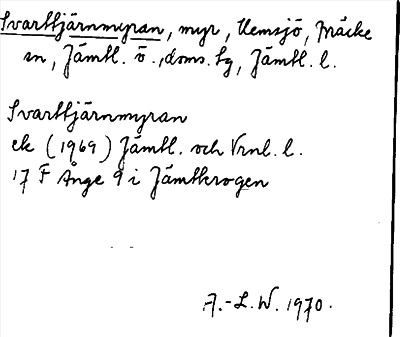 Svarttjärnmyran, myr, Hemsjö, Bräcke
sn, Jämtl. ö., doms. tg, Jämtl. l.
Svarttjärnmyran
ek (1969) Jämtl. och Vrnl. l.
17 F Ånge 9 i Jämtkrogen
A.-L.W. 1970.